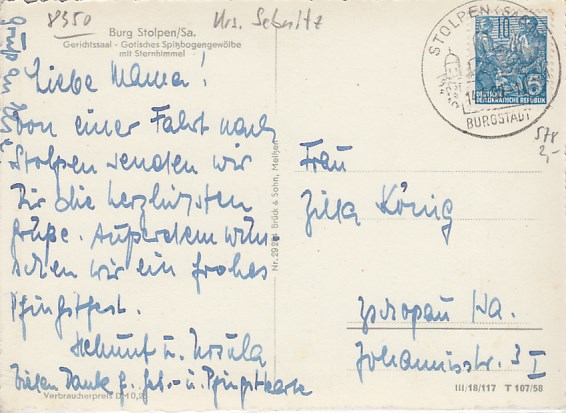 8350
Krs. Sebnitz
Burg Stolpen/Sa.
Gerichtssaal - Gotisches Spitzbogengewölbe
mit Sternhimmel
Liebe Mama!
Von einer Fahrt nach
Stolpen senden wir
Dir die herzlichsten
Grüße. Außerdem wün-
schen wir ein frohes
Pfingstfest.
Helmut u. Ursula
Vielen Dank f. - u. Pfingstkarte
Verbraucherpreis DM 0,25
Gruß an
Nr. Brück & Sohn, Meißen
STOLPEN (SACHS)
BURGSTADT
10
DEUTSCHE
DEMOKRATISCHE REPUBLIK
578
2,-
Frau
Zilla König
Zschopau /Sa.
Johannisstr. 3 I
III/18/117 T 107/58